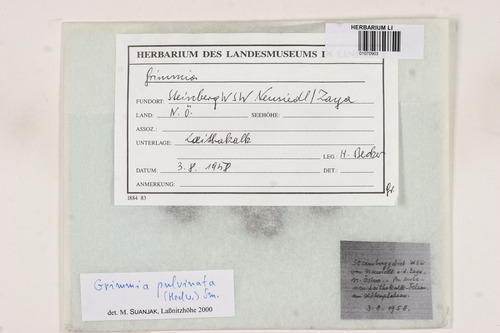 HERBARIUM LI
01070903
HERBARIUM DES LANDESMUSEUMS IN
Grimmia
FUNDORT: Steinberg WSW Neusiedl/Zaya
LAND: N.Ö. SEEHÖHE:
ASSOZ.:
UNTERLAGE: Leithakalk
LEG.: H. Becker
DATUM: 3.8.1958 DET.:
ANMERKUNG:
1884 83
Grimmia pulvinata
(Hedw.) Sm.
det. M. SUANJAK, Laßnitzhöhe 2000
Steinberggebiet WSW
von Neusiedl a.d. Zaya,
3.8.1958.